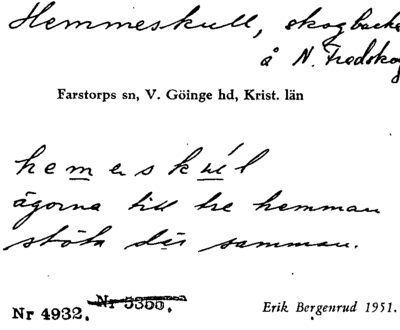 Hemmeskull, skogbacke
å N. Fredskog
Farstorps sn, V. Göinge hd, Krist. län
ägorna till tre hemman
stöta där samman.
Nr 4932. Nr 5355.
Erik Bergenrud 1951.